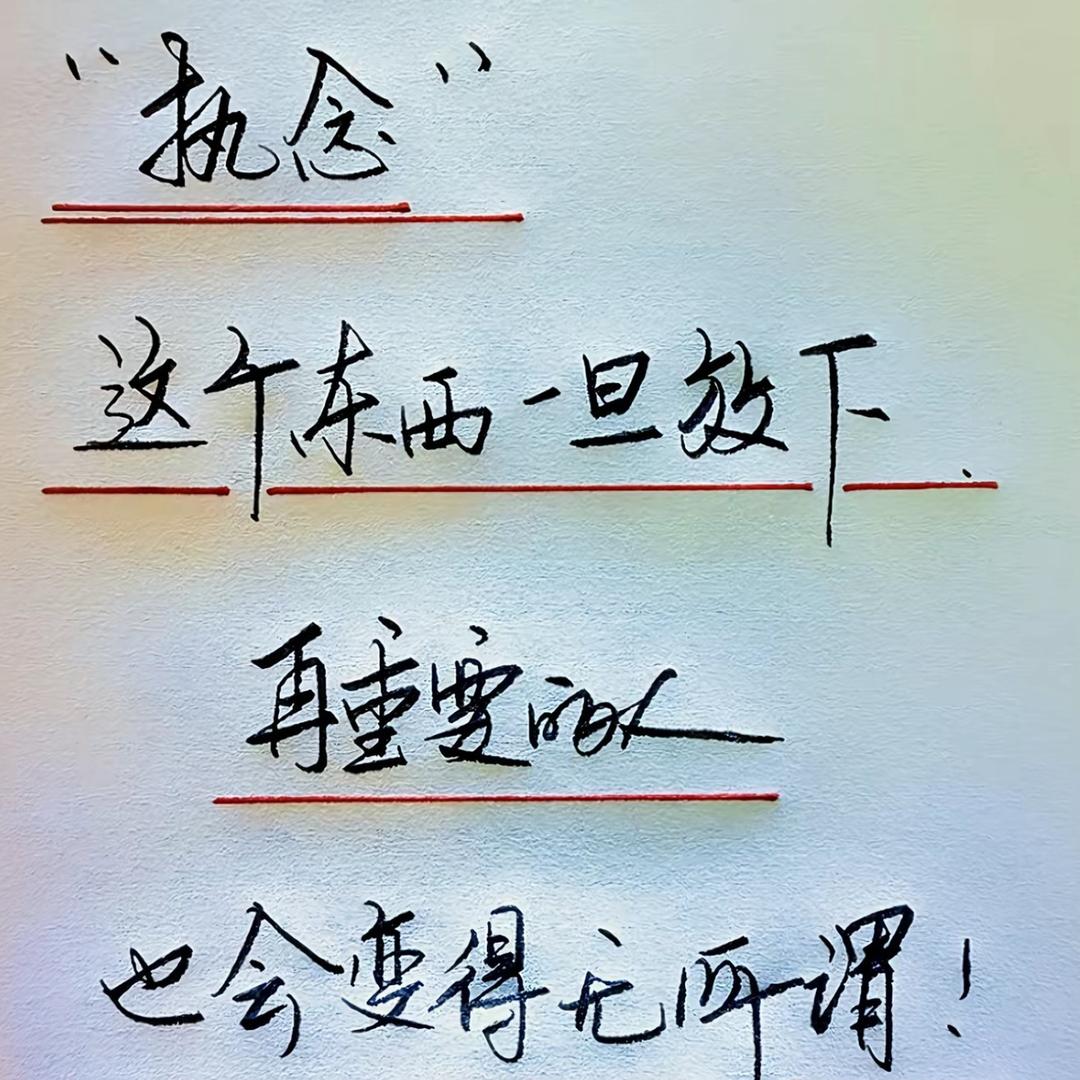 “执念”
这个东西一旦放下.
再重要的人
也会变得无所谓!